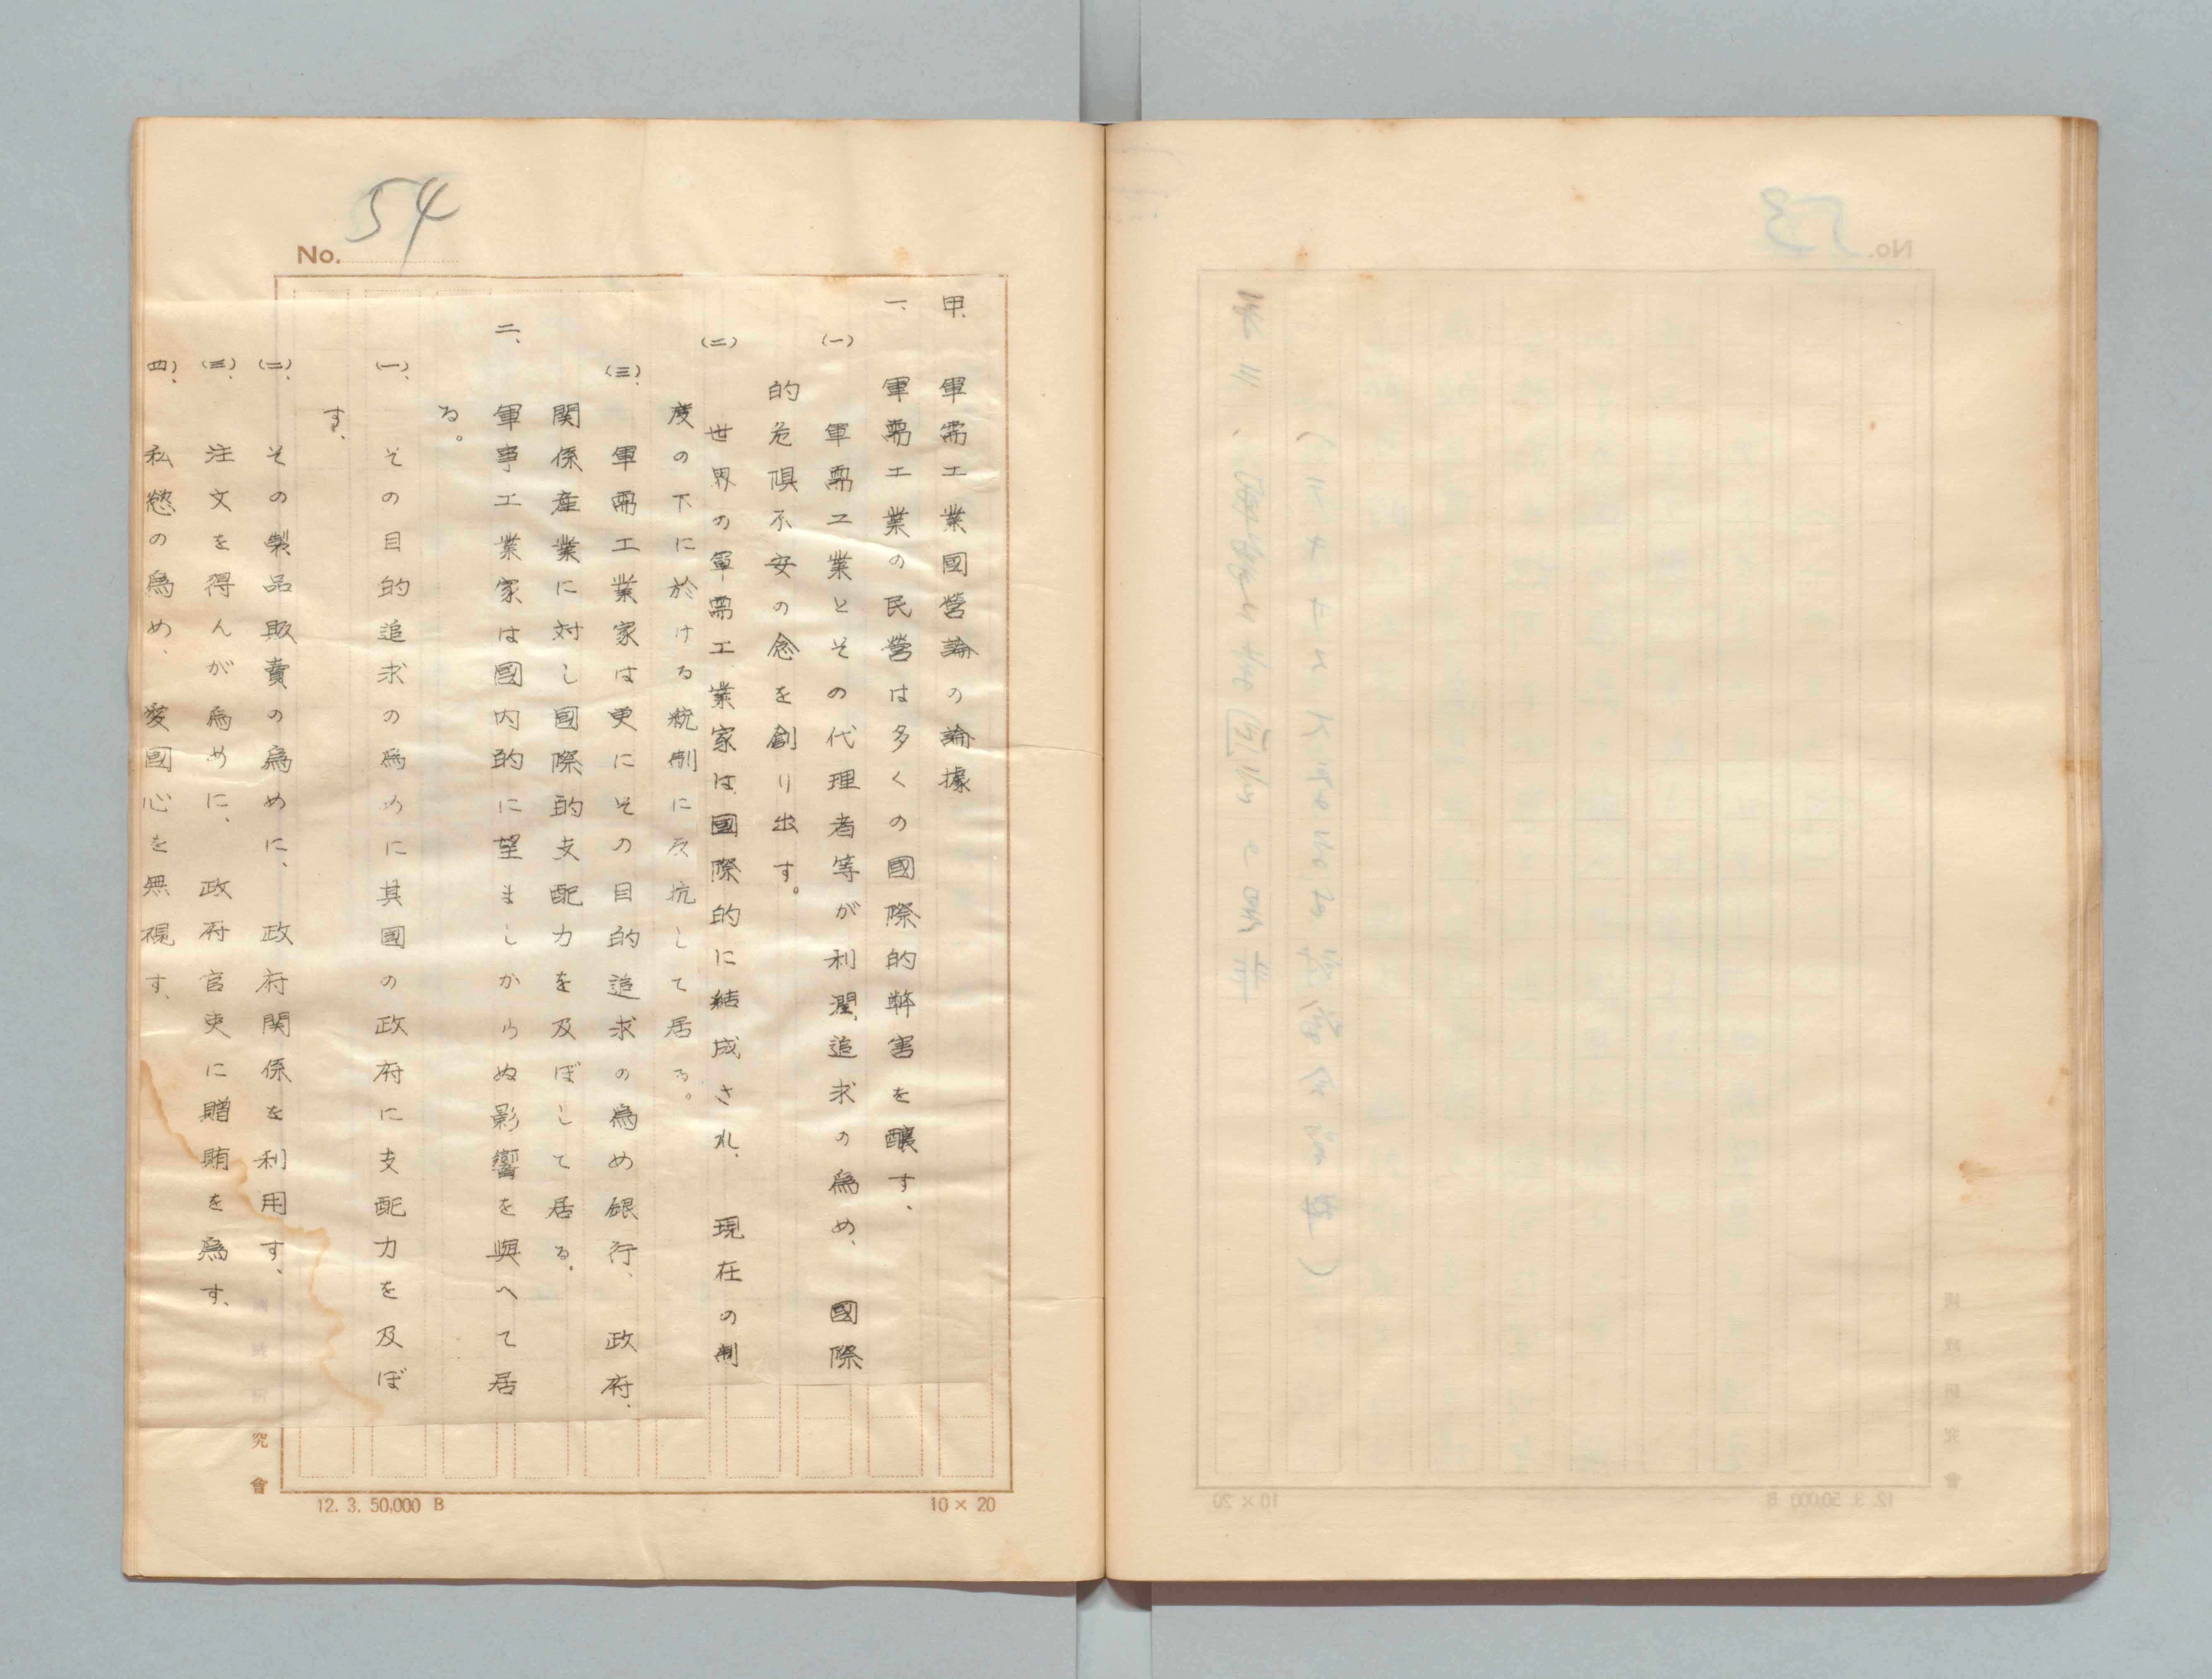 54
No.
甲、軍需工業國營論の論據
一、軍需工業の民營は多くの國際的弊害を釀す、
(一)軍需工業とその代理者等が利潤追求の爲め、國際
的危惧不安の念を創り出す。
(二)世界の軍需工業家は國際的に結成され、現在の制
度の下に於ける統制に反抗して居る。
(三)、軍需工業家は更にその目的追求の爲め銀行、政府、
関係産業に対し國際的支配力を及ぼして居る。
二、軍事工業家は國内的に望ましからぬ影響を與へて居
る。
(一)、その目的追求の爲めに其國の政府に支配力を及ぼ
す、
(二)、その製品販賣の爲めに、政府関係を利用す、
(三)、注文を得んが爲めに、政府官吏に贈賄を爲す、
四)、私慾の爲め、愛國心を無視す、
究會
12. 3. 50,000 B
10 × 20